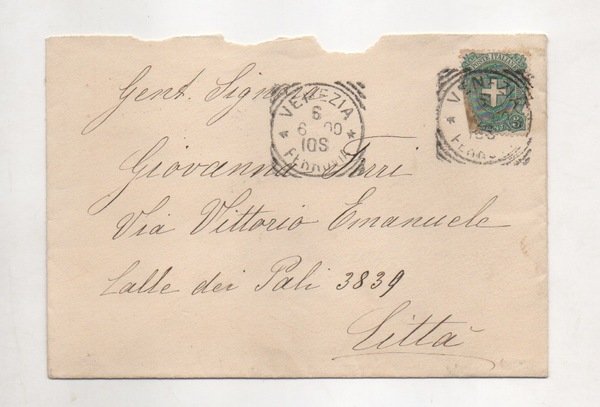 Gent. Signora
VENEZIA
6
6 00
10S
FERROVIA
VENEZIA
10S
FERROVIA
POSTE ITALIANE
Giovanna Torri
Via Vittorio Emanuele
Calle dei Pali 3839
Città